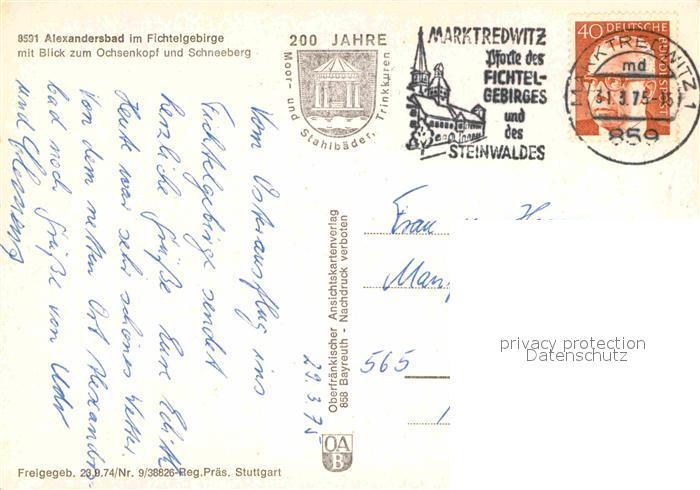 8591 Alexandersbad im Fichtelgebirge
mit Blick zum Ochsenkopf und Schneeberg
200 JAHRE
Moor- und Stahlbäder, Trinkkuren
MARKTREDWITZ
Pforte des
FICHTEL-
GEBIRGES
und
des
STEINWALDES
40 DEUTSCHE
BUNDESPOST
MARKTREDWITZ
md
31.3.75
859
Vom Osterausflug ins
Fichtelgebirge sendet
herzliche Grüße Eure Edith
Heute war sehr schönes Wetter.
Von dem netten Ort Alexanders-
bad noch Grüße von Udo
und
29.3.75
Oberfränkischer Ansichtskartenverlag
858 Bayreuth - Nachdruck verboten
OA
B
Frau
565
privacy protection
Datenschutz
Freigegeb. 23.9.74/Nr. 9/38826-Reg.Präs. Stuttgart